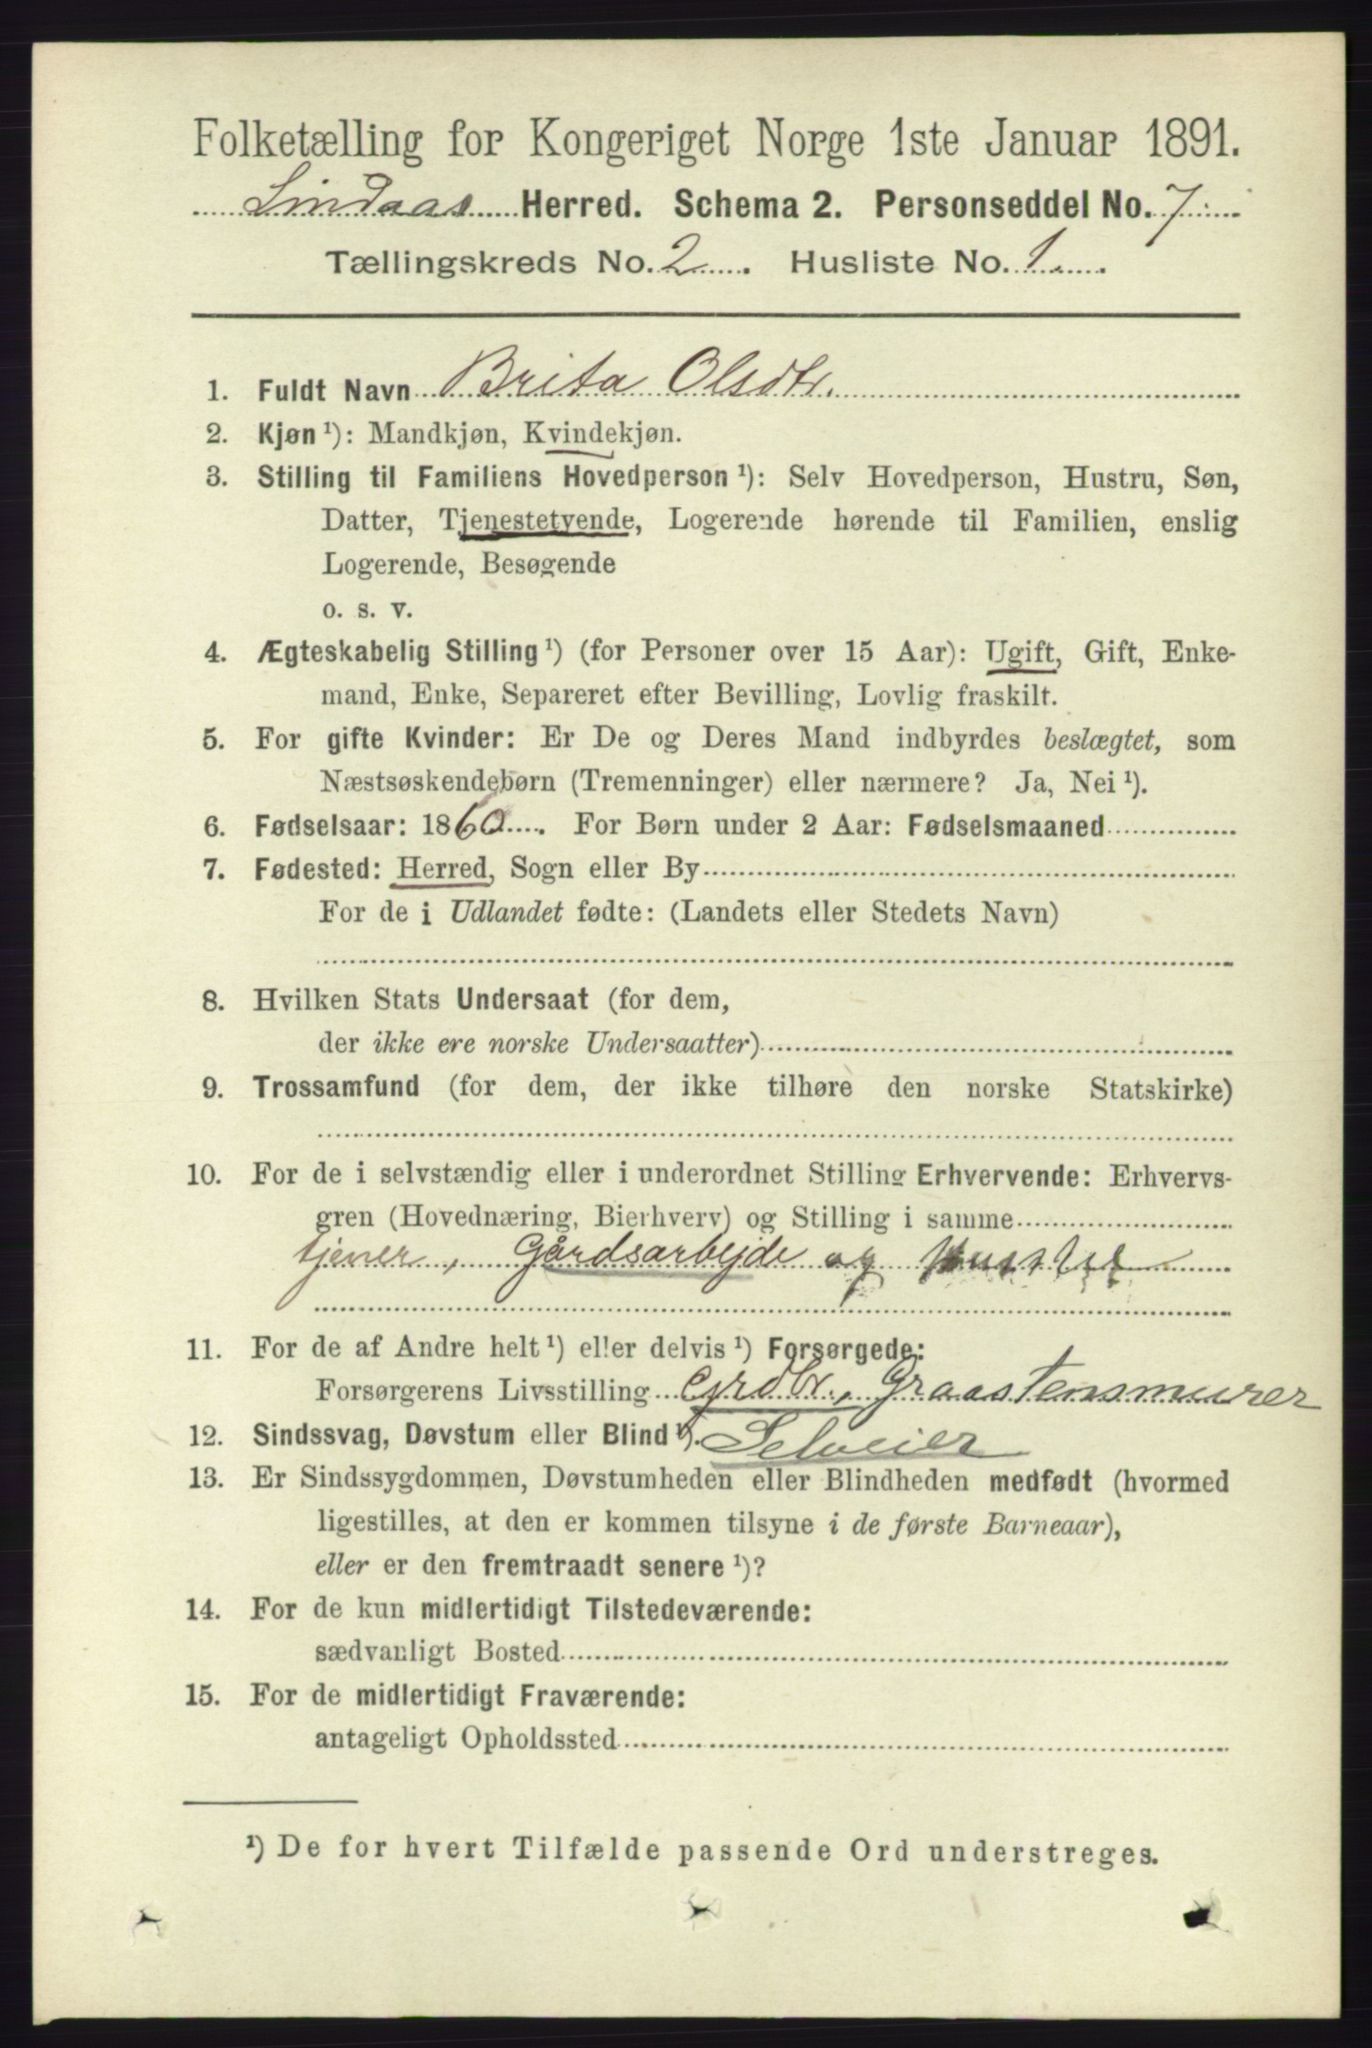 Folketælling for Kongeriget Norge 1ste Januar 1891.
Lindaas Herred. Schema 2. Personseddel No. 7
Tællingskreds No. 2. Husliste No. 1.
1. Fuldt Navn Brita Olsdtr.
2. Kjøn ¹): Mandkjøn, Kvindekjøn.
3. Stilling til Familiens Hovedperson ¹): Selv Hovedperson, Hustru, Søn,
Datter, Tjenestetyende, Logerende hørende til Familien, enslig
Logerende, Besøgende
o. s. v.
4. Ægteskabelig Stilling ¹) (for Personer over 15 Aar): Ugift, Gift, Enke-
mand, Enke, Separeret efter Bevilling, Lovlig fraskilt.
5. For gifte Kvinder: Er De og Deres Mand indbyrdes beslægtet, som
Næstsøskendebørn (Tremenninger) eller nærmere? Ja, Nei ¹).
6. Fødselsaar: 1860. For Børn under 2 Aar: Fødselsmaaned
7. Fødested: Herred, Sogn eller By
For de i Udlandet fødte: (Landets eller Stedets Navn)
8. Hvilken Stats Undersaat (for dem,
der ikke ere norske Undersaatter)
9. Trossamfund (for dem, der ikke tilhøre den norske Statskirke)
10. For de i selvstændig eller i underordnet Stilling Erhvervende: Erhvervs-
gren (Hovednæring, Bierhverv) og Stilling i samme
tjener, Gårdsarbejde og
11. For de af Andre helt ¹) eller delvis ¹) Forsørgede:
Forsørgerens Livsstilling Grdbr., Graastensmurer
12. Sindssvag, Døvstum eller Blind ¹). Selveier
13. Er Sindssygdommen, Døvstumheden eller Blindheden medfødt (hvormed
ligestilles, at den er kommen tilsyne i de første Barneaar),
eller er den fremtraadt senere ¹)?
14. For de kun midlertidigt Tilstedeværende:
sædvanligt Bosted
15. For de midlertidigt Fraværende:
antageligt Opholdssted
¹) De for hvert Tilfælde passende Ord understreges.